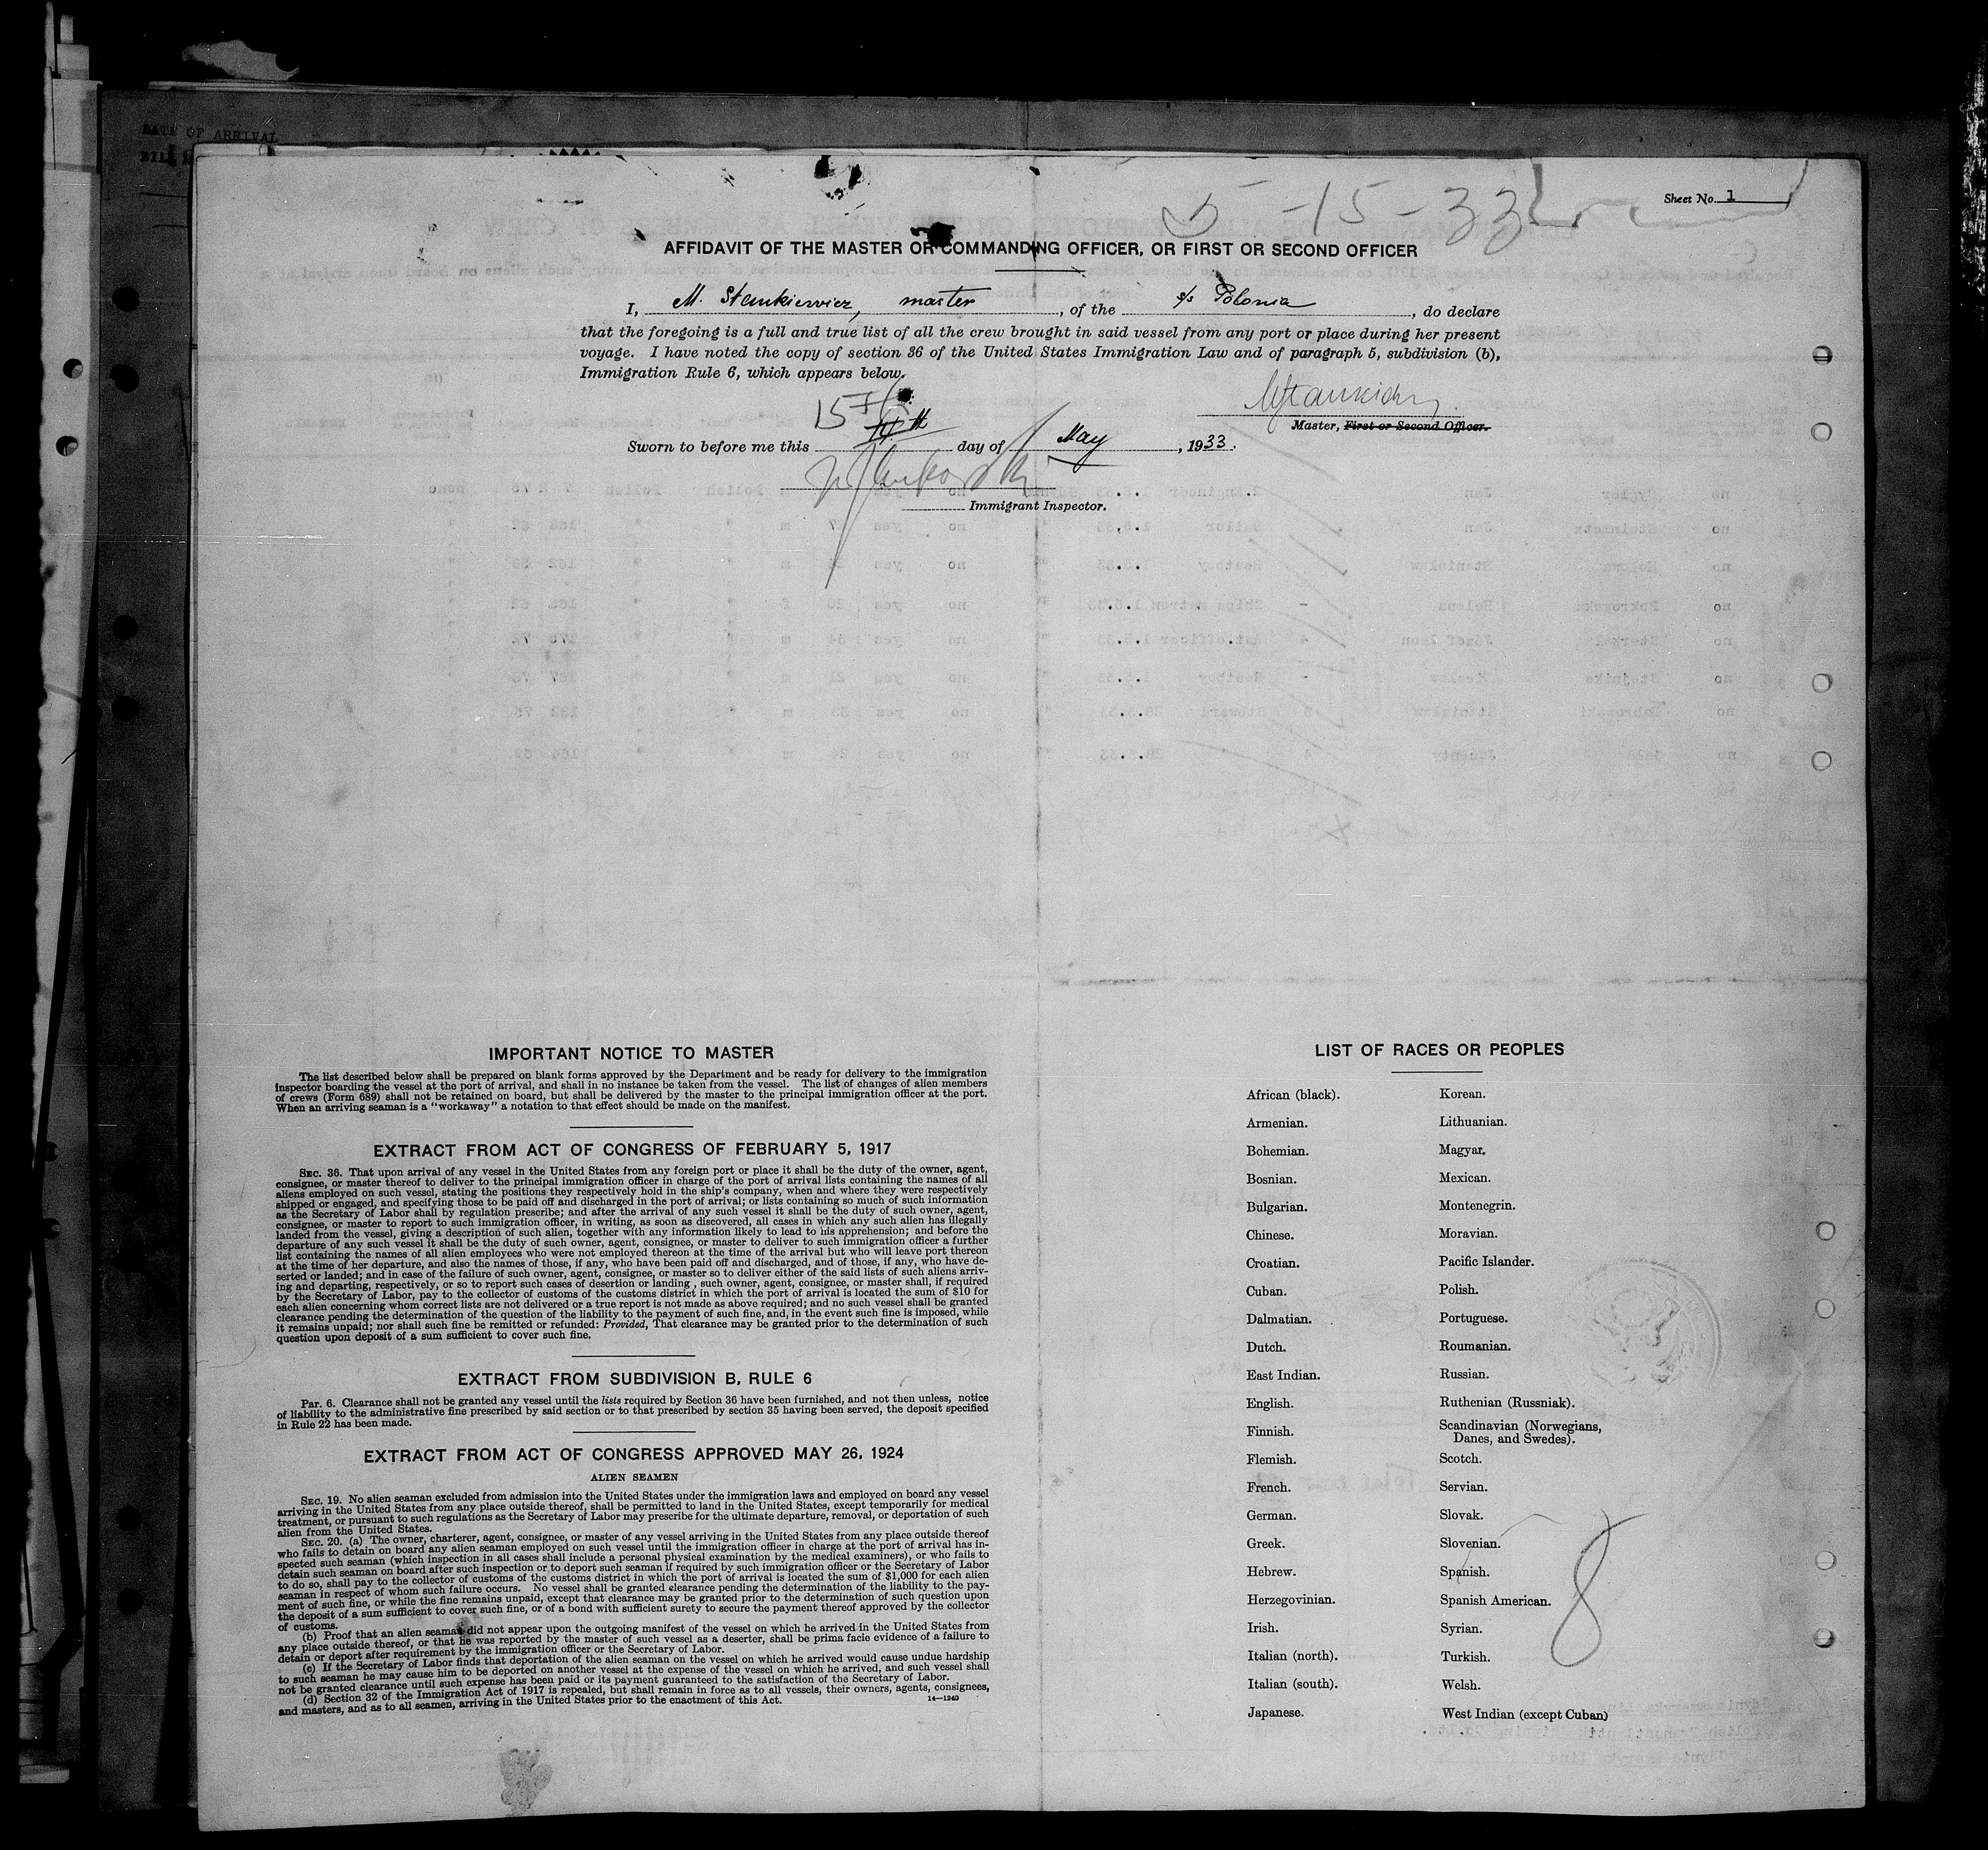 DATE OF ARRIVAL
5-15-33
Sheet No. 1
AFFIDAVIT OF THE MASTER OR COMMANDING OFFICER, OR FIRST OR SECOND OFFICER
I, M. Stankiewicz, master, of the s/s Polonia, do declare
that the foregoing is a full and true list of all the crew brought in said vessel from any port or place during her present
voyage. I have noted the copy of section 36 of the United States Immigration Law and of paragraph 5, subdivision (b),
Immigration Rule 6, which appears below.
Master, First or Second Officer.
15th
Sworn to before me this 14th day of May, 1933.
Immigrant Inspector.
IMPORTANT NOTICE TO MASTER
The list described below shall be prepared on blank forms approved by the Department and be ready for delivery to the immigration
inspector boarding the vessel at the port of arrival, and shall in no instance be taken from the vessel. The list of changes of alien members
of crews (Form 689) shall not be retained on board, but shall be delivered by the master to the principal immigration officer at the port.
When an arriving seaman is a "workaway" a notation to that effect should be made on the manifest.
EXTRACT FROM ACT OF CONGRESS OF FEBRUARY 5, 1917
SEC. 36. That upon arrival of any vessel in the United States from any foreign port or place it shall be the duty of the owner, agent,
consignee, or master thereof to deliver to the principal immigration officer in charge of the port of arrival lists containing the names of all
aliens employed on such vessel, stating the positions they respectively hold in the ship's company, when and where they were respectively
shipped or engaged, and specifying those to be paid off and discharged in the port of arrival; or lists containing so much of such information
as the Secretary of Labor shall by regulation prescribe; and after the arrival of any such vessel it shall be the duty of such owner, agent,
consignee, or master to report to such immigration officer, in writing, as soon as discovered, all cases in which any such alien has illegally
landed from the vessel, giving a description of such alien, together with any information likely to lead to his apprehension; and before the
departure of any such vessel it shall be the duty of such owner, agent, consignee, or master to deliver to such immigration officer a further
list containing the names of all alien employees who were not employed thereon at the time of the arrival but who will leave port thereon
at the time of her departure, and also the names of those, if any, who have been paid off and discharged, and of those, if any, who have de-
serted or landed; and in case of the failure of such owner, agent, consignee, or master so to deliver either of the said lists of such aliens arriv-
ing and departing, respectively, or so to report such cases of desertion or landing, such owner, agent, consignee, or master shall, if required
by the Secretary of Labor, pay to the collector of customs of the customs district in which the port of arrival is located the sum of $10 for
each alien concerning whom correct lists are not delivered or a true report is not made as above required; and no such vessel shall be granted
clearance pending the determination of the question of the liability to the payment of such fine, and, in the event such fine is imposed, while
it remains unpaid; nor shall such fine be remitted or refunded: Provided, That clearance may be granted prior to the determination of such
question upon deposit of a sum sufficient to cover such fine.
EXTRACT FROM SUBDIVISION B, RULE 6
Par. 6. Clearance shall not be granted any vessel until the lists required by Section 36 have been furnished, and not then unless, notice
of liability to the administrative fine prescribed by said section or to that prescribed by section 35 having been served, the deposit specified
in Rule 22 has been made.
EXTRACT FROM ACT OF CONGRESS APPROVED MAY 26, 1924
ALIEN SEAMEN
SEC. 19. No alien seaman excluded from admission into the United States under the immigration laws and employed on board any vessel
arriving in the United States from any place outside thereof, shall be permitted to land in the United States, except temporarily for medical
treatment, or pursuant to such regulations as the Secretary of Labor may prescribe for the ultimate departure, removal, or deportation of such
alien from the United States.
SEC. 20. (a) The owner, charterer, agent, consignee, or master of any vessel arriving in the United States from any place outside thereof
who fails to detain on board any alien seaman employed on such vessel until the immigration officer in charge at the port of arrival has in-
spected such seaman (which inspection in all cases shall include a personal physical examination by the medical examiners), or who fails to
detain such seaman on board after such inspection or to deport such seaman if required by such immigration officer or the Secretary of Labor
to do so, shall pay to the collector of customs of the customs district in which the port of arrival is located the sum of $1,000 for each alien
seaman in respect of whom such failure occurs. No vessel shall be granted clearance pending the determination of the liability to the pay-
ment of such fine, or while the fine remains unpaid, except that clearance may be granted prior to the determination of such question upon
the deposit of a sum sufficient to cover such fine, or of a bond with sufficient surety to secure the payment thereof approved by the collector
of customs.
(b) Proof that an alien seaman did not appear upon the outgoing manifest of the vessel on which he arrived in the United States from
any place outside thereof, or that he was reported by the master of such vessel as a deserter, shall be prima facie evidence of a failure to
detain or deport after requirement by the immigration officer or the Secretary of Labor.
(c) If the Secretary of Labor finds that deportation of the alien seaman on the vessel on which he arrived would cause undue hardship
to such seaman he may cause him to be deported on another vessel at the expense of the vessel on which he arrived, and such vessel shall
not be granted clearance until such expense has been paid or its payment guaranteed to the satisfaction of the Secretary of Labor.
(d) Section 32 of the Immigration Act of 1917 is repealed, but shall remain in force as to all vessels, their owners, agents, consignees,
and masters, and as to all seamen, arriving in the United States prior to the enactment of this Act.
14—1240
LIST OF RACES OR PEOPLES
African (black).
Armenian.
Bohemian.
Bosnian.
Bulgarian.
Chinese.
Croatian.
Cuban.
Dalmatian.
Dutch.
East Indian.
English.
Finnish.
Flemish.
French.
German.
Greek.
Hebrew.
Herzegovinian.
Irish.
Italian (north).
Italian (south).
Japanese.
Korean.
Lithuanian.
Magyar.
Mexican.
Montenegrin.
Moravian.
Pacific Islander.
Polish.
Portuguese.
Roumanian.
Russian.
Ruthenian (Russniak).
Scandinavian (Norwegians,
Danes, and Swedes).
Scotch.
Servian.
Slovak.
Slovenian.
Spanish.
Spanish American.
Syrian.
Turkish.
Welsh.
West Indian (except Cuban)
8